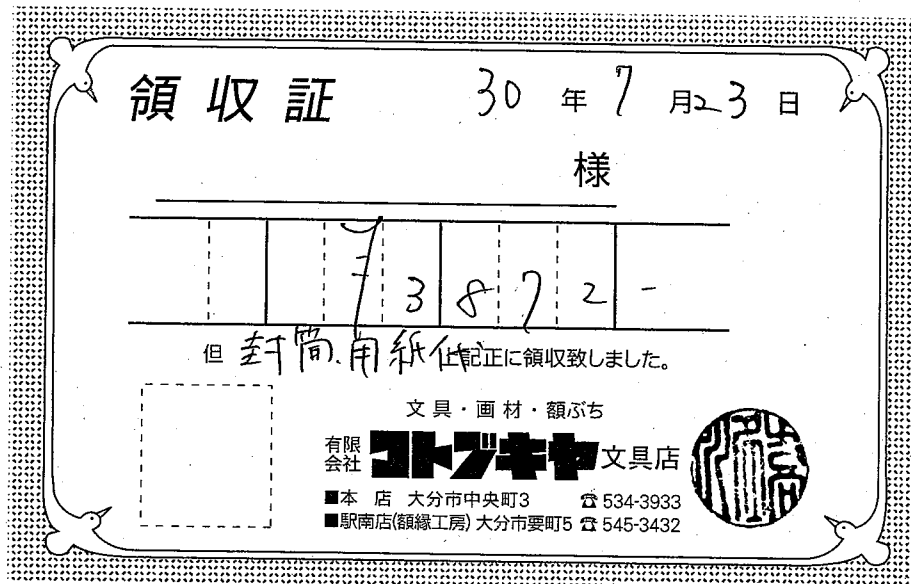 領収証 30年7月23日
様
¥3872-
但 封筒、用紙代 上記正に領収致しました。
文具・画材・額ぶち
有限会社 コトブキヤ文具店
■本 店 大分市中央町3 ☎534-3933
■駅南店(額縁工房) 大分市要町5 ☎545-3432